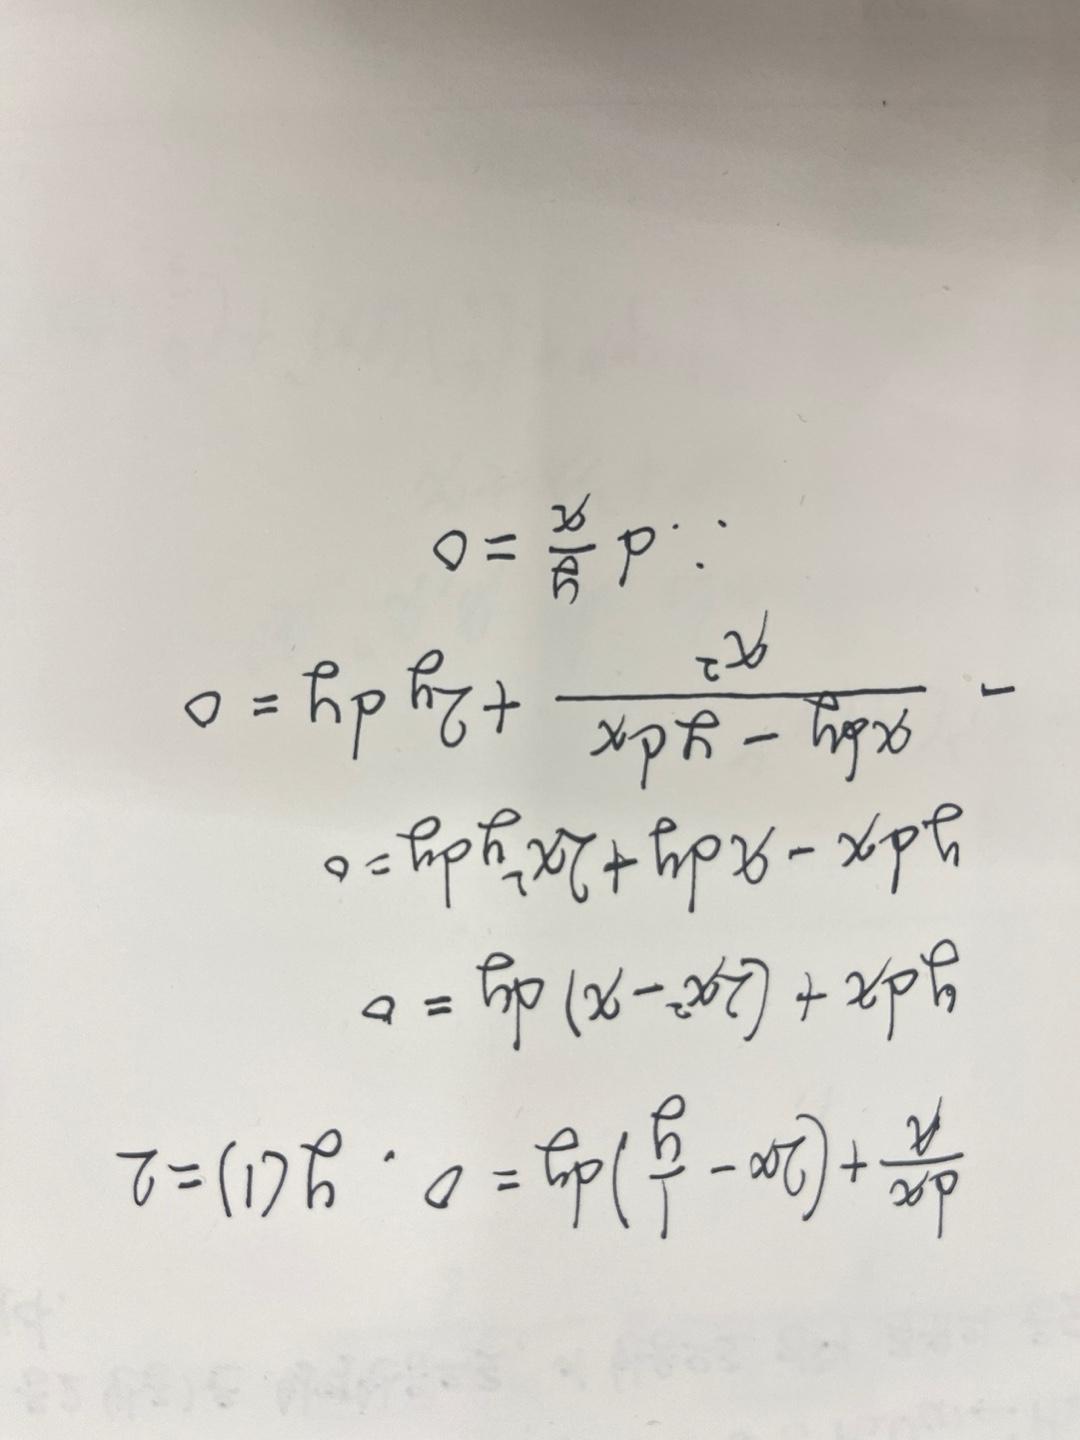 dx/x + (2x - 1/y)dy = 0. y(1) = 2
ydx + (2x² - x)dy = 0
ydx - xdy + 2x²ydy = 0
- (xdy - ydx)/x² + 2y dy = 0
∴ d y/x = 0